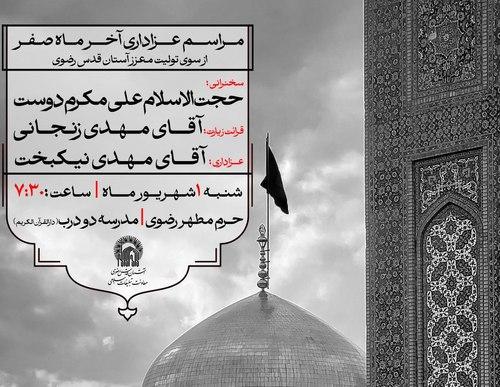 مراسم عزاداری آخر ماه صفر
از سوی تولیت معزز آستان قدس رضوی
سخنرانی:
حجت‌الاسلام علی مکرم‌دوست
قرائت زیارت: آقای مهدی زنجانی
عزاداری: آقای مهدی نیکبخت
شنبه ۱ شهریور ماه | ساعت: ۷:۳۰
حرم مطهر رضوی | مدرسه دو درب (دارالقرآن الکریم)
آستان قدس رضوی
معاونت تبلیغات اسلامی